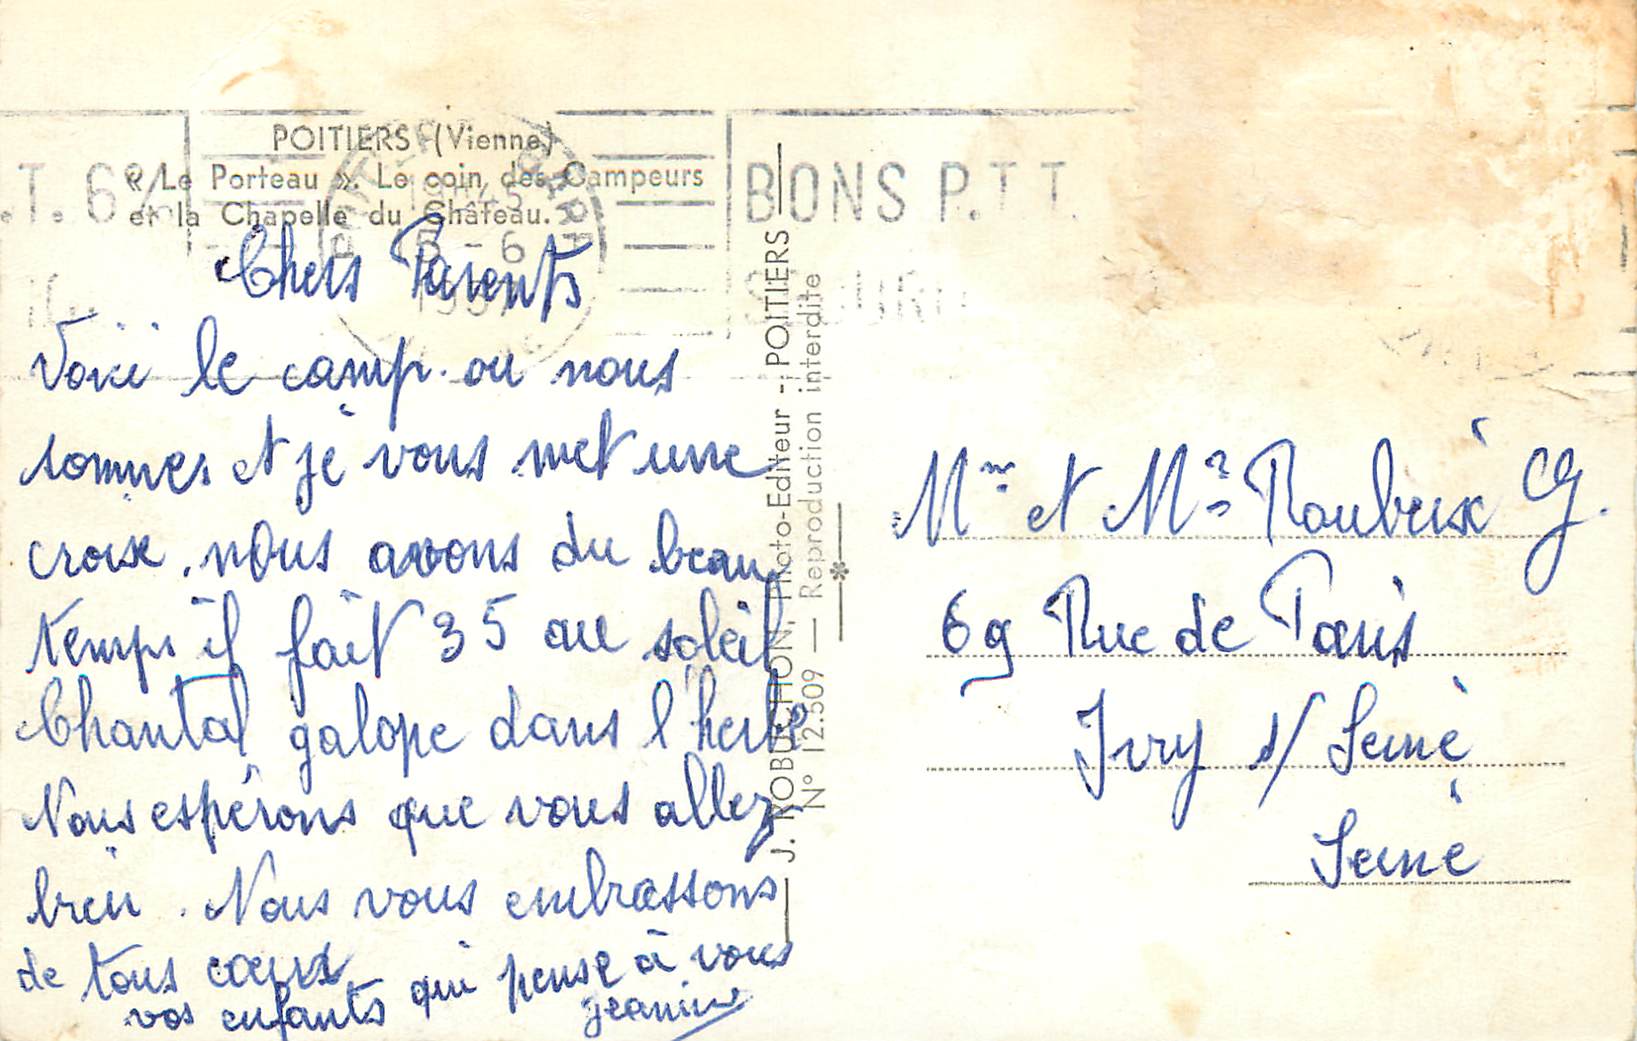 POITIERS (Vienne)
« Le Porteau ». Le coin des Campeurs
et la Chapelle du Château.
.T. 6%
BONS P.T.T.
Chers Parents
Voici le camp. ou nous
sommes et je vous met une
croix. nous avons du beau
temps il fait 35 au soleil
Chantal galope dans l herbe
Nous espérons que vous allez
bien. Nous vous embrassons
de tous cœurs
vos enfants qui pense à vous
jeanine
J. ROBUCHON, Photo-Editeur - POITIERS
N° 12.509 — Reproduction interdite
*
Mme et Mr Roubeix G.
69 Rue de Paris
Ivry s/ Seine
Seine